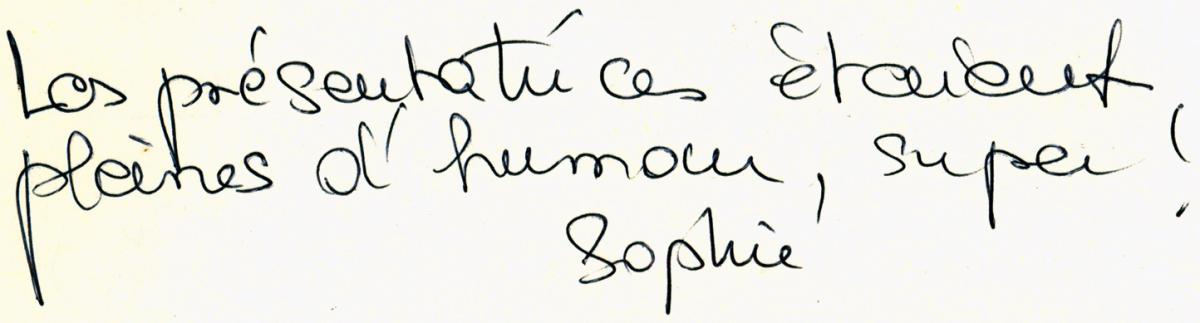 Les présentatrices étaient
pleines d'humour, super !
Sophie